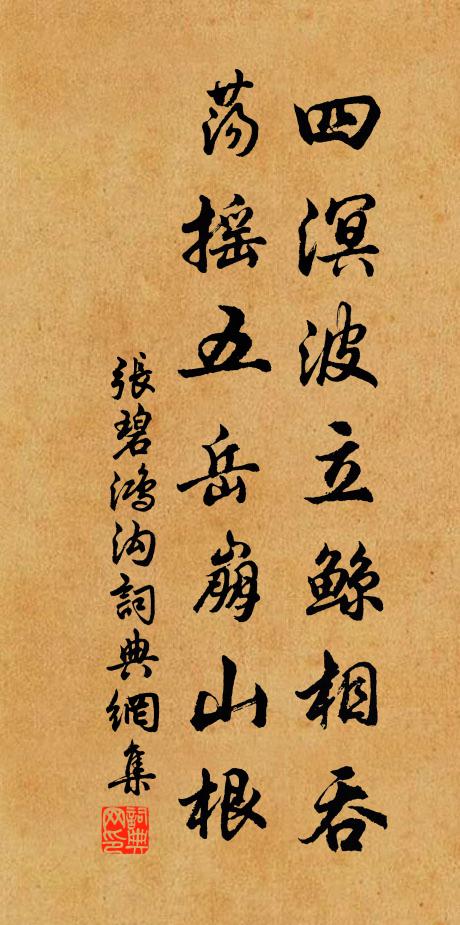 四溟波立鲸相吞
荡摇五岳崩山根
張碧鴻沟詞典網集
詞典网印